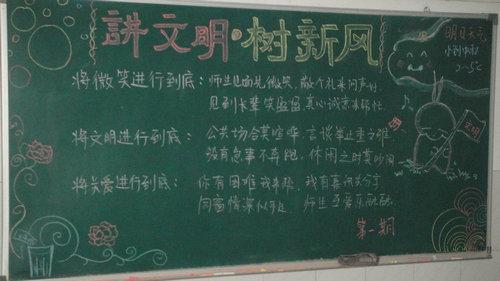 讲文明·树新风
明日天气
将微笑进行到底：师生见面见微笑，敬个礼来问声好
见到长辈笑盈盈，真心诚意来帮忙
将文明进行到底：公共场合莫喧哗，言谈举止重文雅
没有急事不奔跑，休闲之时莫吵闹
文明
将关爱进行到底：你有困难我来帮，我有喜讯共分享
同窗情深似手足，师生互爱乐融融
第一期